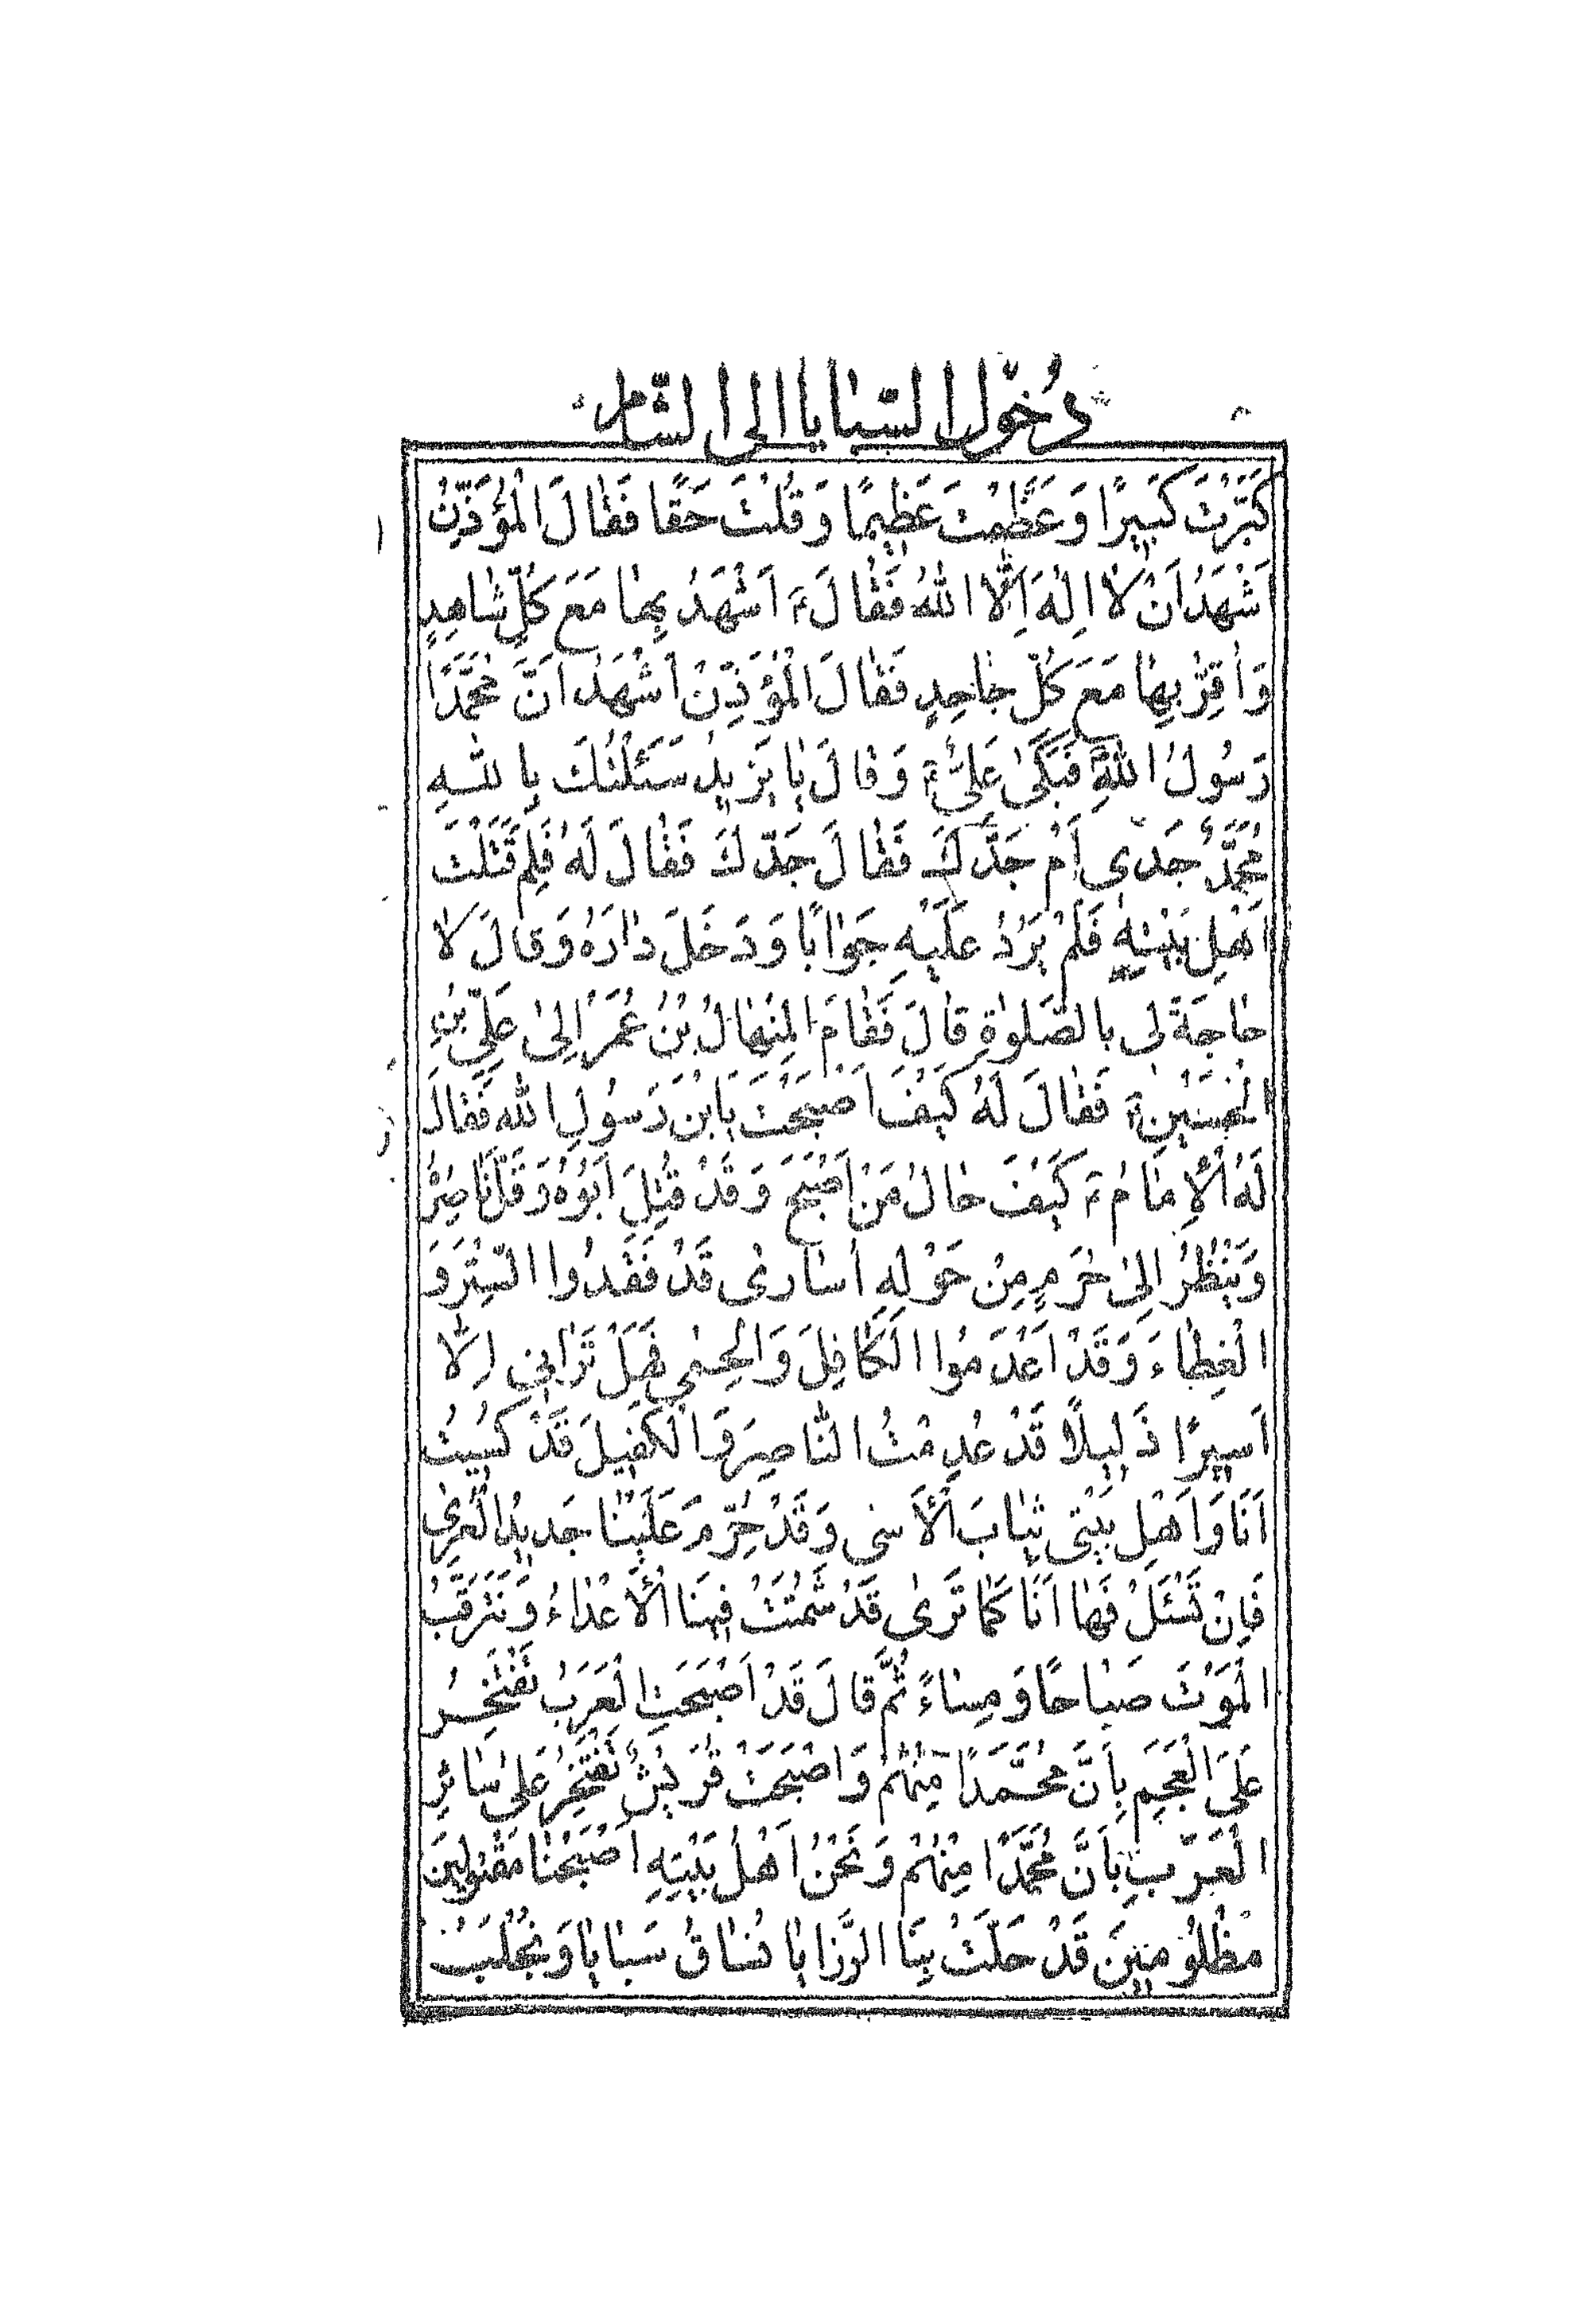 دُخُوْل السَّبٰايا الى الشّامِ
كَبَّرْتَ كَبيرًا وَ عَظَّمْتَ عَظيمًا وَ قُلْتَ حَقًّا فَقٰالَ الْمُؤَذِّنُ
اَشْهَدُ اَنْ لٰا اِلٰهَ اِلَّا اللّٰهُ فَقٰالَ ؑ اَشْهَدُ بِهٰا مَعَ كُلِّ شٰاهِدٍ
وَ اُقِرُّ بِهٰا مَعَ كُلِّ جٰاحِدٍ فَقٰالَ الْمُؤَذِّنُ اَشْهَدُ اَنَّ مُحَمَّدًا
رَسُولُ اللّٰهِ فَبَكىٰ عَلِيٌّ ؑ وَ قٰالَ يٰا يَزيدُ سَئَلْتُكَ بِاللّٰهِ
مُحَمَّدٌ جَدّى اَمْ جَدُّكَ فَقٰالَ جَدُّكَ فَقٰالَ لَهُ فَلِمَ قَتَلْتَ
اَهْلَ بَيْتِهِ فَلَمْ يَرُدُّ عَلَيْهِ جَوٰابًا وَ دَخَلَ دٰارَهُ وَ قالَ لٰا
حٰاجَةَ لى بالصَّلوٰةِ قٰالَ فَقٰامَ الْمِنْهٰالُ بْنُ عُمَرَ اِلىٰ عَلِيِّ بْنِ
الْحُسَيْنِ ؑ فَقٰالَ لَهُ كَيْفَ اَصْبَحْتَ يَابْنَ رَسُولِ اللّٰهِ فَقٰالَ
لَهُ الْاِمٰامُ ؑ كَيْفَ حٰالُ مَنْ اَصْبَحَ وَ قَدْ قُتِلَ اَبُوْهُ وَ قَلَّ نٰاصِرُهُ
وَ يَنْظُرُ اِلىٰ حُرَمٍ مِنْ حَوْلِهِ اُسٰارىٰ قَدْ فَقَدُوا السِّتْرَ وَ
الْغِطٰاءَ وَ قَدْ اَعْدَمُوا الْكٰافِلَ وَ الْحِمىٰ فَهَلْ تَرٰانى اِلّٰا
اَسيرًا ذَليلًا قَدْ عُدِمْتُ النّٰاصِرَ وَ الْكَفيلَ قَدْ كُسيتُ
اَنَا وَ اَهْلُ بَيْتى ثِيٰابَ الْاَسٰى وَ قَدْ حُرِّمَ عَلَيْنٰا جَديدُ الْعُرىٰ
فَاِنْ تَسْئَلْ فَهٰا اَنَا كَمٰا تَرىٰ قَدْ شَمُتَتْ فينَا الْاَعْدٰاءُ وَ نَتَرَقَّبُ
الْمَوْتَ صَبٰاحًا وَ مِسٰاءً ثُمَّ قالَ قَدْ اَصْبَحَتِ الْعَرَبُ تَفْتَخِرُ
عَلَى الْعَجَمِ بِاَنَّ مُحَمَّدًا مِنْهُمْ وَ اَصْبَحَتْ قُرَيْشٌ تَفْتَخِرُ عَلىٰ سٰائِرِ
الْعَرَبِ بِاَنَّ مُحَمَّدًا مِنْهُمْ وَ نَحْنُ اَهْلُ بَيْتِهِ اَصْبَحْنٰا مَقْتُولينَ
مَظْلُومينَ قَدْ حَلَّتْ بِنَا الرَّزٰايٰا نُسٰاقُ سَبٰايٰا وَ نُجْلَبُ